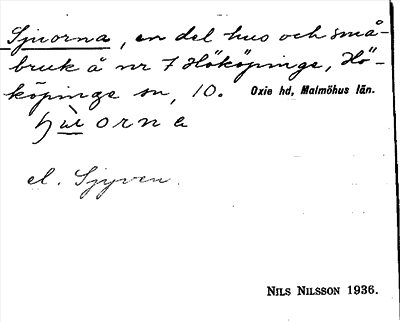 Sjuorna, en del hus och små-
bruk å nr 7 Hököpinge, Hö-
köpinge sn, 10. Oxie hd, Malmöhus län.
el. Sjyven.
NILS NILSSON 1936.